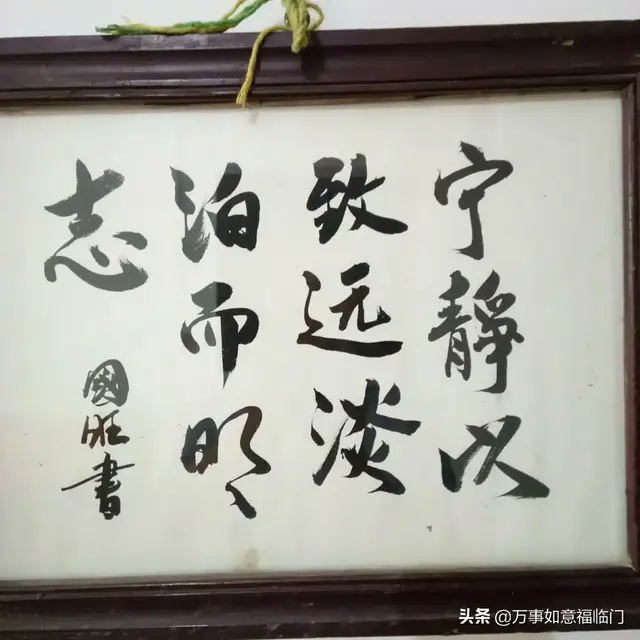 宁靜以
致远淡
泊而明
志
國旺書
头条 @万事如意福临门